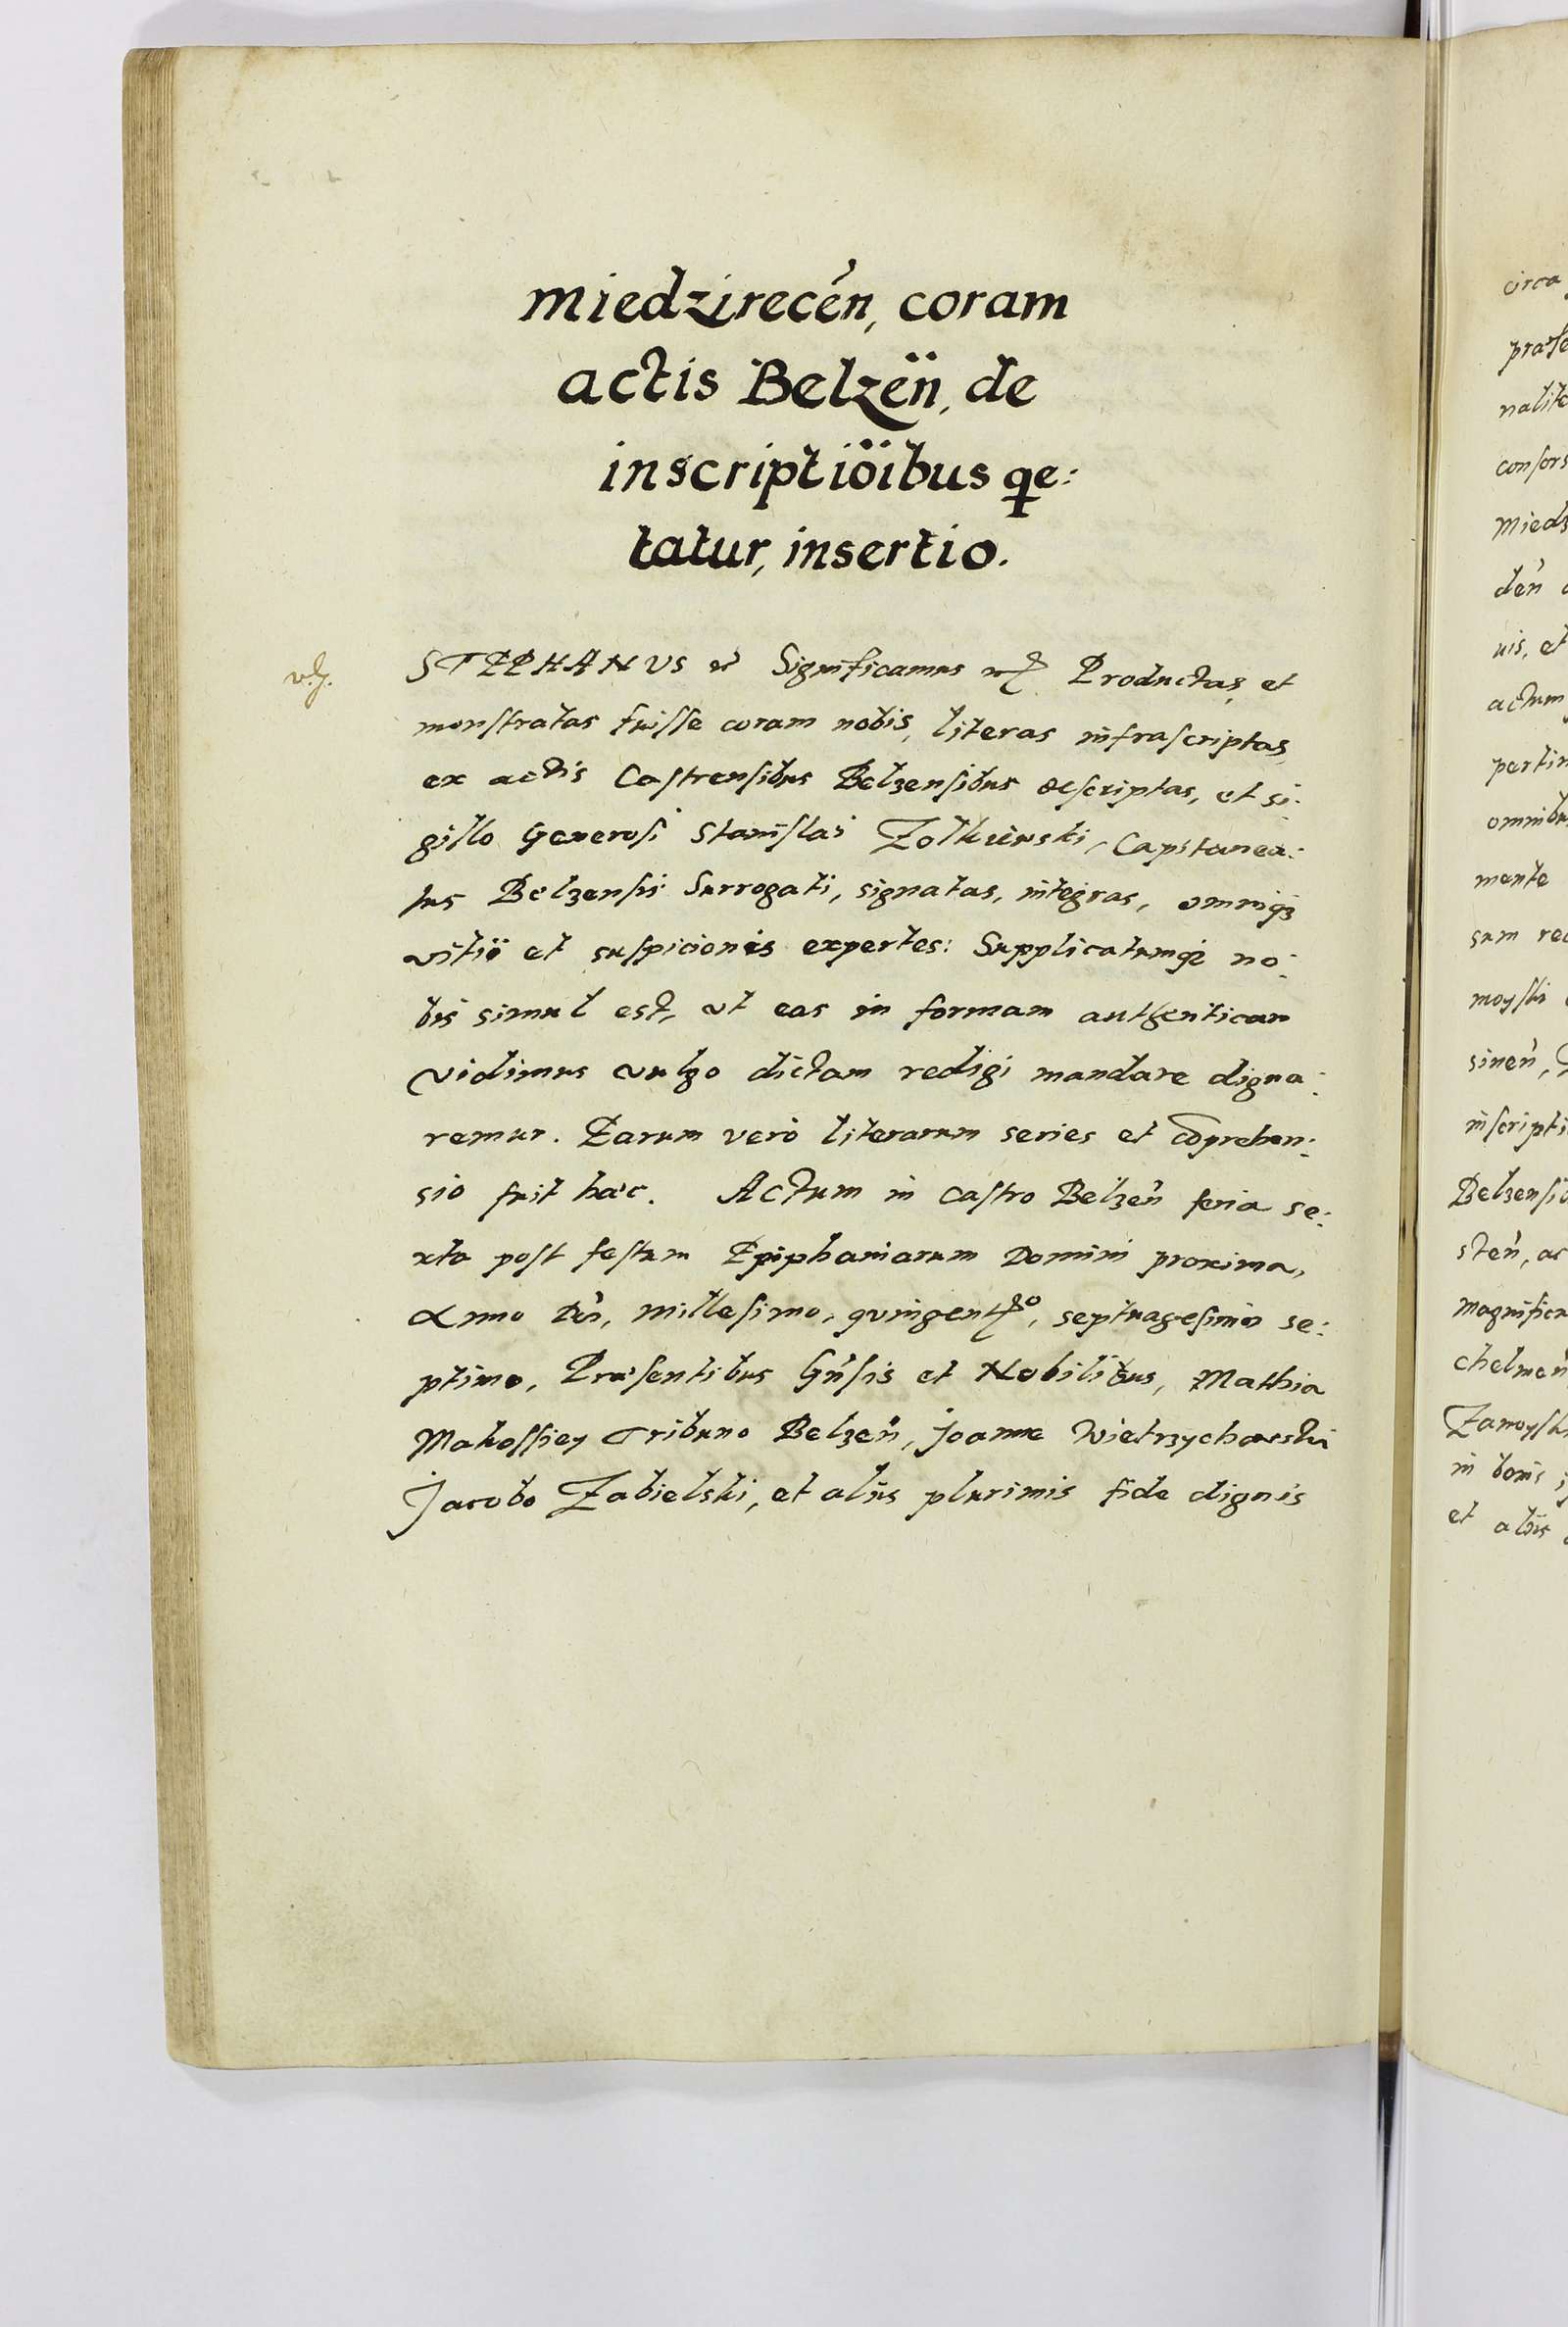 miedzirecen̄, coram
actis Belzen̄, de
inscriptiōibus qe:
tatur, insertio.
STEPHANUS &c Significamus Productas, et
monstratas fuisse coram nobis, literas infrascriptas,
ex actis Castrensibus Belzensibus descriptas, et si:
gillo Generosi Stanislai Zolkiewski, Capitanea:
tus Belzensis Surrogati, signatas, integras, omniq3
vitij et suspicionis expertes: Supplicatumq3 no:
bis simul est, ut eas in formam authenticam
vidimus vulgo dictam redigi mandare digna:
remur. Earum verò literarum series et cōprehen:
sio fuit haec. Actum in castro Belzen̄ feria se:
xta post festum Epiphaniarum Domini proxima,
Anno Dn̄i, millesimo, quingent°, septuagesimo se:
ptimo, Praesentibus Gn̄sis et Nobilibus, Mathia
Makossiey Tribuno Belzen̄, Joanne Wietrzychowski
Jacobo Zabielski, et alijs plurimis fide dignis
circa
nalite
consors
miedz
den̄
uis, et
actum
pertin
omnibu
mente
sum rec
moyski
sinen̄,
inscripti
Belzensi
sten̄, ac
magnific
chelmen̄
Zamoysk
in bonis
et alijs